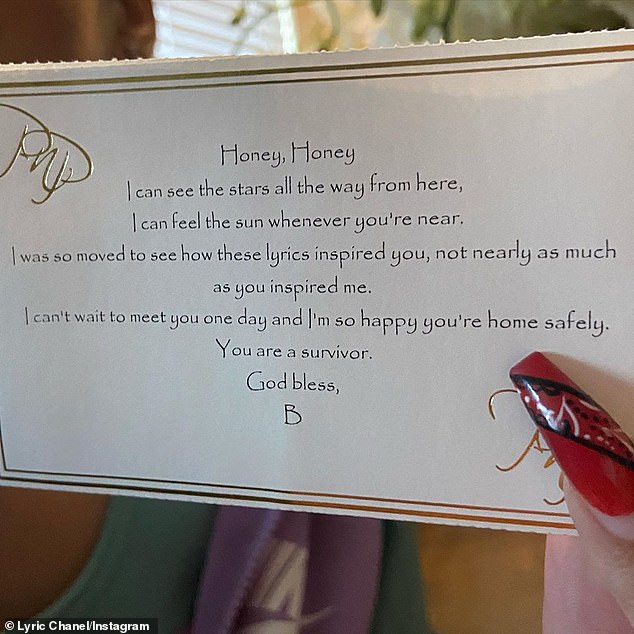 Honey, Honey
I can see the stars all the way from here,
I can feel the sun whenever you're near.
I was so moved to see how these lyrics inspired you, not nearly as much
as you inspired me.
I can't wait to meet you one day and I'm so happy you're home safely.
You are a survivor.
God bless,
B
© Lyric Chanel/Instagram